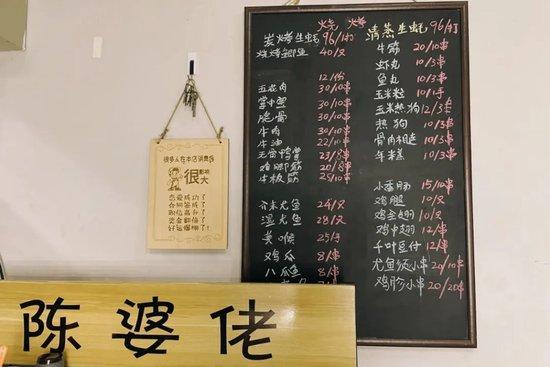 烧 烤
炭烤生蚝 96/打
烧烤鲫鱼 40/又
12/份
五花肉 30/10串
掌中宝 30/10串
脆骨 30/10串
牛肉 30/10串
牛油 22/10串
无骨鸭掌 23/8串
鸡脚筋 20/8串
牛板筋 25/10串
介末尤鱼 24/又
温尤鱼 28/又
黄喉 25/手
鸡爪 8/串
八爪鱼 8/串
清蒸生蚝 96/打
牛筋 20/10串
虾丸 10/3串
鱼丸 10/3串
玉米粒 10/1手
玉米热狗 12/3串
热狗 10/3串
骨肉相连 10/3串
年糕 10/3串
小香肠 15/10串
鸡腿 10/又
鸡全翅 10/又
鸡中翅 12/串
千叶豆付 12/串
尤鱼须小串 20/10串
鸡胗小串 20/20串
很多人在本店消费后
很影响大
恋爱成功了
合同签成了
职位高升了
奖金翻倍了
好运爆棚了!
陈婆佬